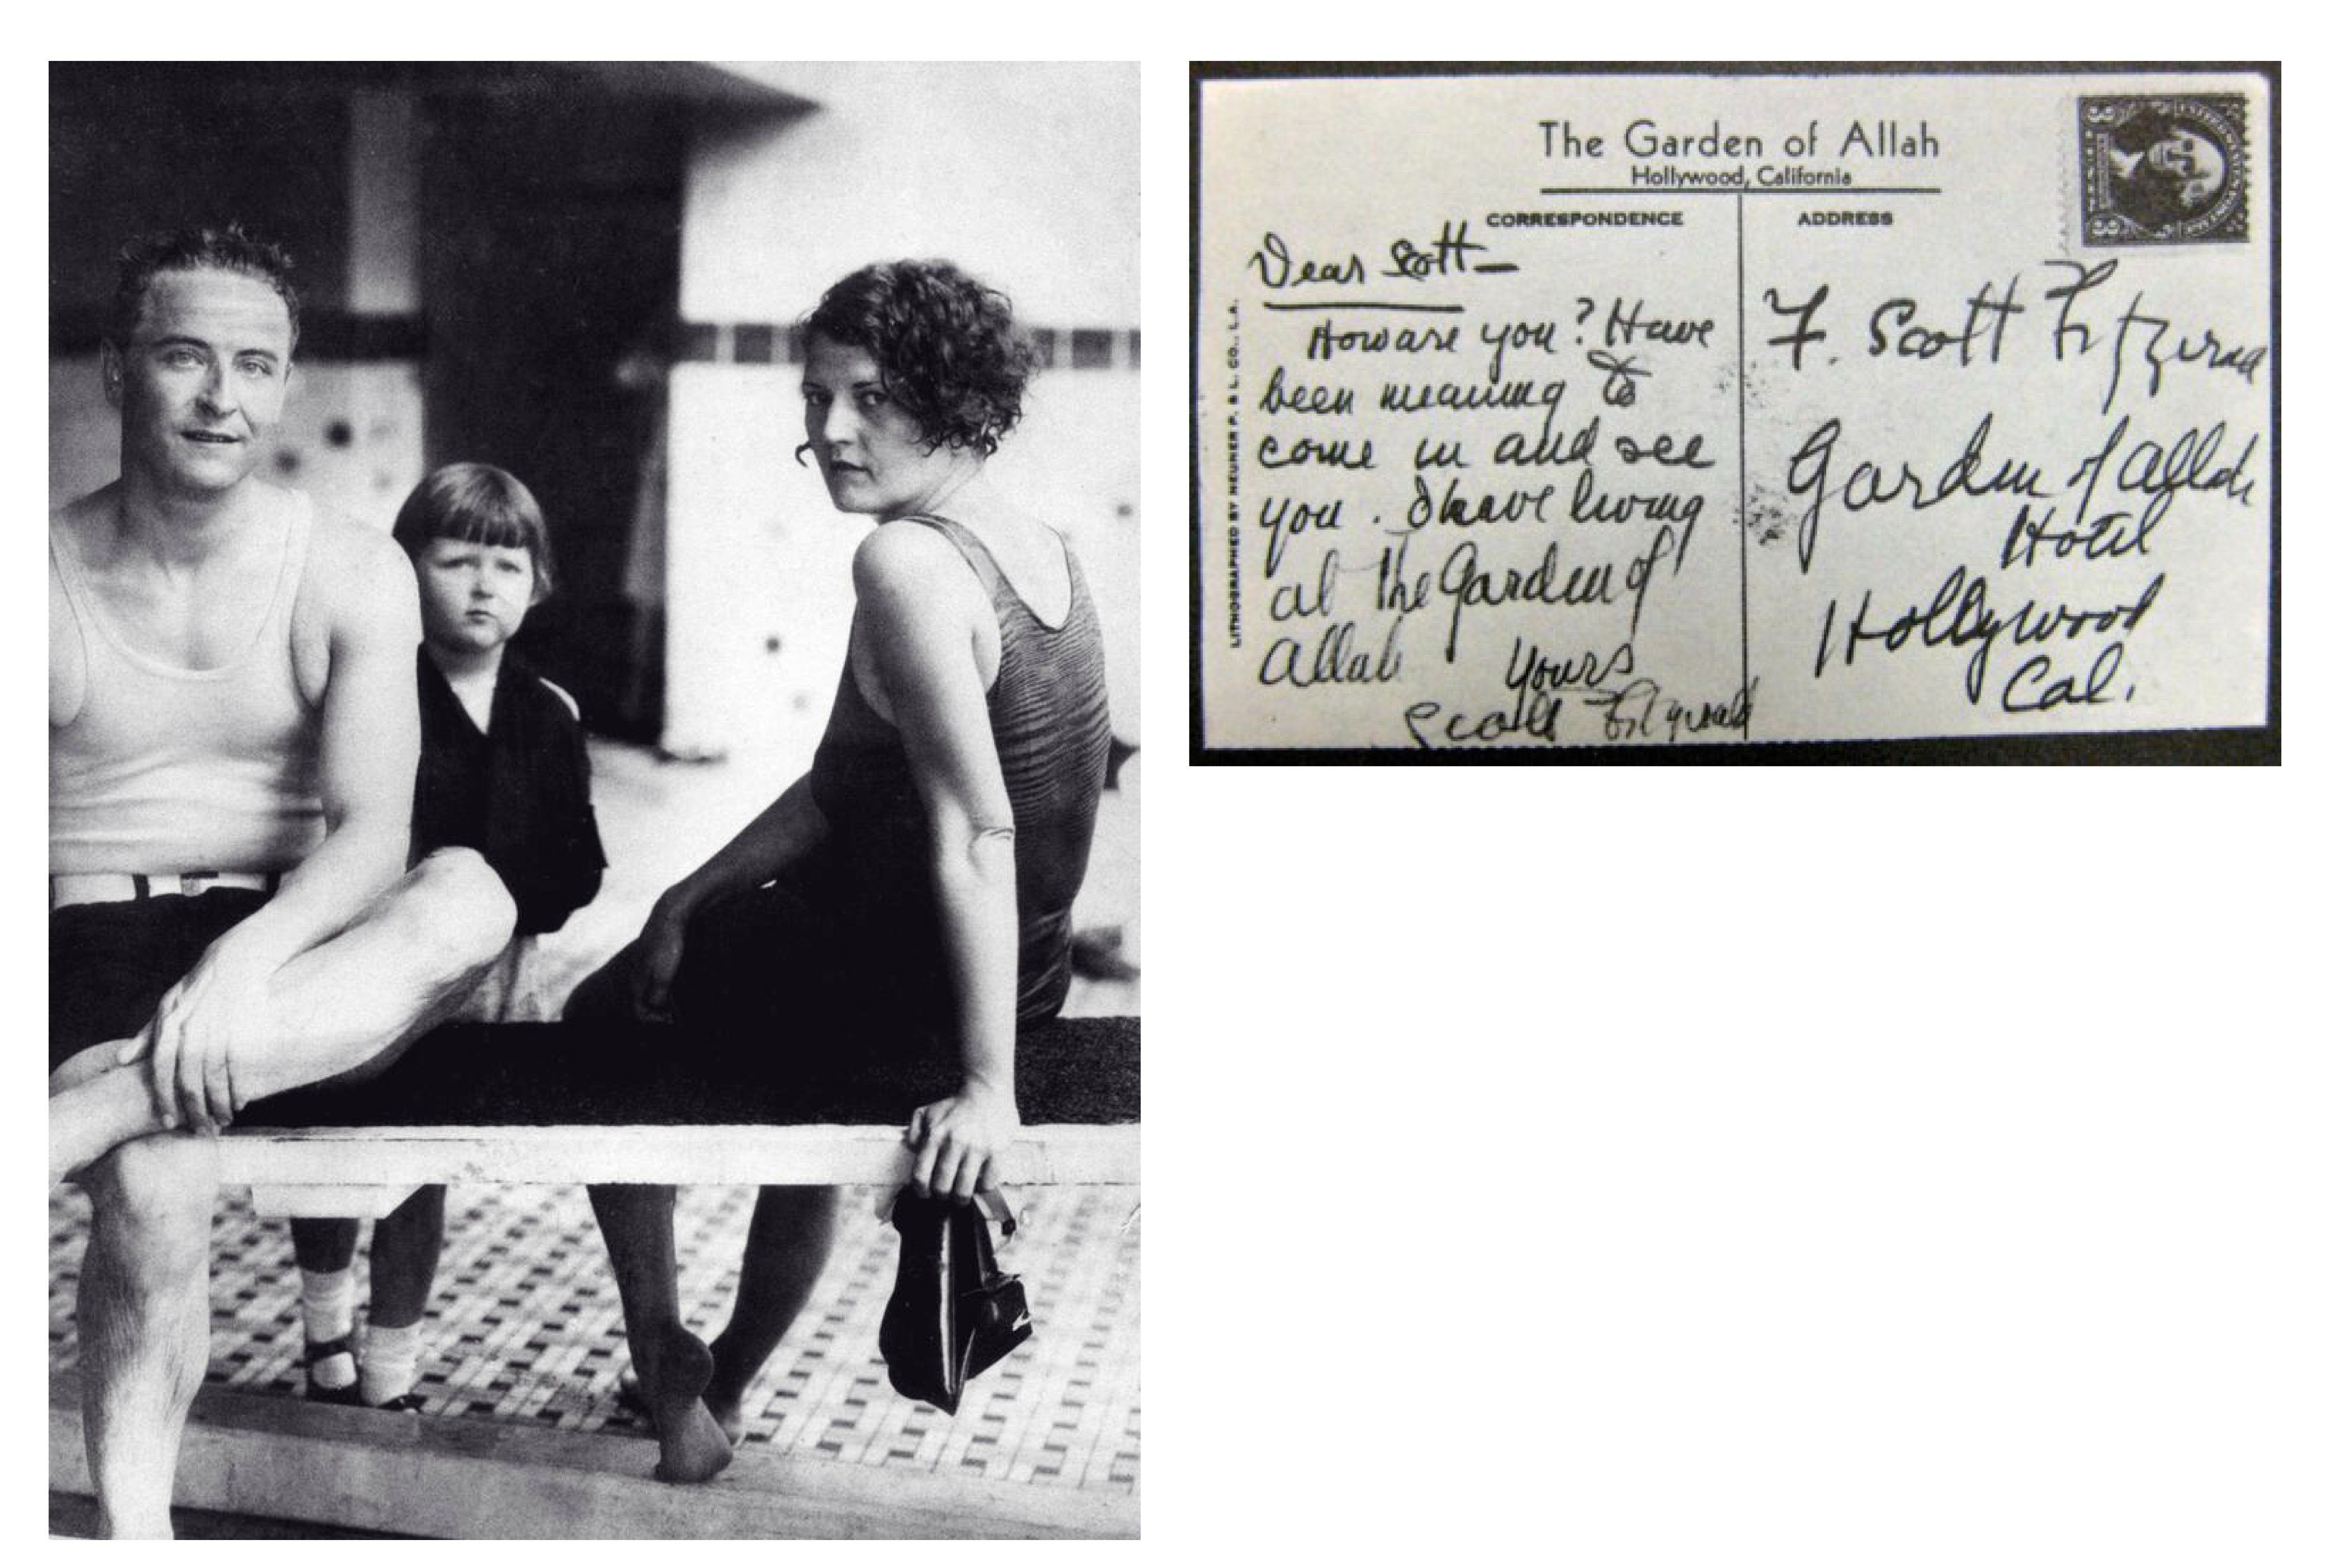 The Garden of Allah
Hollywood, California
CORRESPONDENCE
ADDRESS
Dear Scott—
How are you? Have
been meaning to
come in and see
you. I have living
at the Garden of
Allah
Yours
Scott Fitzgerald
F. Scott Fitzgerald
Garden of Allah
Hotel
Hollywood
Cal.
LITHOGRAPHED BY NEUNER P. & L. CO., L.A.
3
3